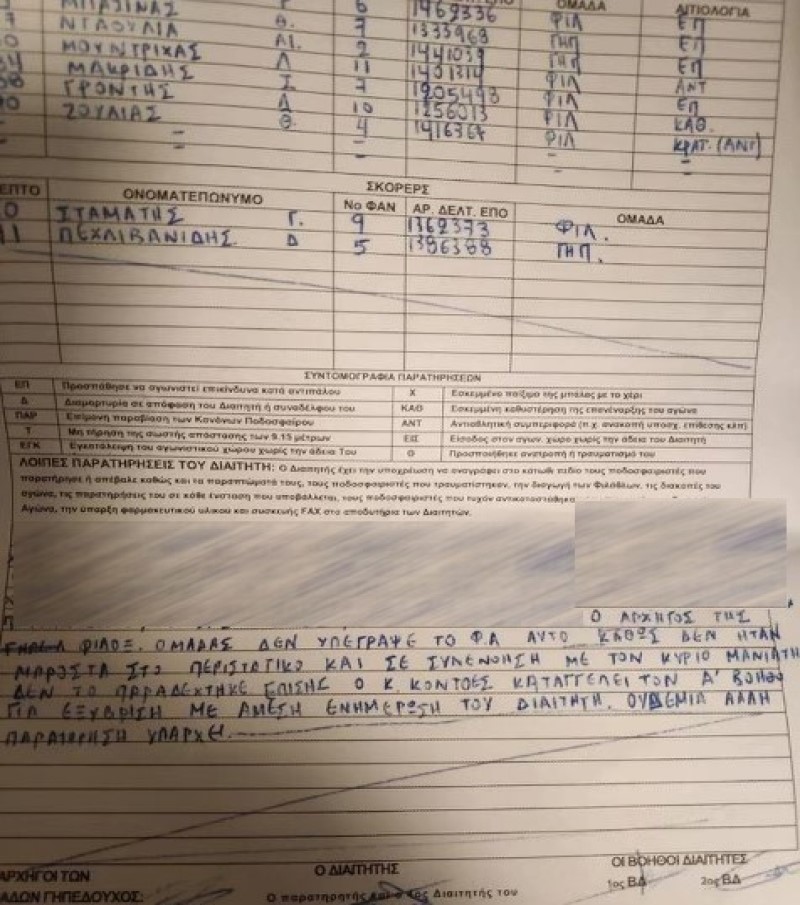 ΟΜΑΔΑ ΑΙΤΙΟΛΟΓΙΑ
ΜΠΑΖΙΝΑΣ 6 1469336 ΦΙΛ ΕΠ
ΝΤΑΟΥΛΙΑ Θ. 7 1333968 ΓΗΠ ΕΠ
ΜΟΥΝΤΡΙΧΑΣ ΑΙ. 2 1441039 ΓΗΠ ΕΠ
ΜΑΚΡΙΔΗΣ Λ 11 1401314 ΦΙΛ ΑΝΤ
ΓΡΟΝΤΗΣ Σ 7 1205498 ΦΙΛ ΕΠ
ΖΟΥΛΙΑΣ Δ 10 1256013 ΦΙΛ ΚΑΘ.
Θ. 4 1416367 ΦΙΛ ΚΡΑΤ. (ΑΝΤ)
ΣΚΟΡΕΡΣ
ΕΠΤΟ ΟΝΟΜΑΤΕΠΩΝΥΜΟ Νο ΦΑΝ ΑΡ. ΔΕΛΤ. ΕΠΟ ΟΜΑΔΑ
0 ΣΤΑΜΑΤΗΣ Γ. 9 1362373 ΦΙΛ.
11 ΠΕΧΛΙΒΑΝΙΔΗΣ Δ 5 1386388 ΓΗΠ.
ΣΥΝΤΟΜΟΓΡΑΦΙΑ ΠΑΡΑΤΗΡΗΣΕΩΝ
ΕΠ Προσπάθησε να αγωνιστεί επικίνδυνα κατά αντιπάλου Χ Εσκεμμένο παίξιμο της μπάλας με το χέρι
Δ Διαμαρτυρία σε απόφαση του Διαιτητή ή συναδέλφου του ΚΑΘ Εσκεμμένη καθυστέρηση της επανέναρξης του αγώνα
ΠΑΡ Επίμονη παραβίαση των Κανόνων Ποδοσφαίρου ΑΝΤ Αντιαθλητική συμπεριφορά (π.χ. ανακοπή υποσχ. επίθεσης κλπ)
Τ Μη τήρηση της σωστής απόστασης των 9.15 μέτρων ΕΙΣ Είσοδος στον αγων. χώρο χωρίς την άδεια του Διαιτητή
ΕΓΚ Εγκατάλειψη του αγωνιστικού χώρου χωρίς την άδεια Του Θ Προσποιήθηκε ανατροπή ή τραυματισμό του
ΛΟΙΠΕΣ ΠΑΡΑΤΗΡΗΣΕΙΣ ΤΟΥ ΔΙΑΙΤΗΤΗ: Ο Διαιτητής έχει την υποχρέωση να αναγράφει στο κάτωθι πεδίο τους ποδοσφαιριστές που
παρατήρησε ή απέβαλε καθώς και τα παραπτώματά τους, τους ποδοσφαιριστές που τραυματίστηκαν, την διαγωγή των Φιλάθλων, τις διακοπές του
αγώνα, τις παρατηρήσεις του σε κάθε ένσταση που υποβάλλεται, τους ποδοσφαιριστές που τυχόν αντικαταστάθηκα
Αγώνα, την ύπαρξη φαρμακευτικού υλικού και συσκευής FAX στα αποδυτήρια των Διαιτητών.
Ο ΑΡΧΗΓΟΣ ΤΗΣ
ΦΙΛΟΞ. ΟΜΑΔΑΣ ΔΕΝ ΥΠΕΓΡΑΨΕ ΤΟ Φ.Α ΑΥΤΟ ΚΑΘΩΣ ΔΕΝ ΗΤΑΝ
ΜΠΡΟΣΤΑ ΣΤΟ ΠΕΡΙΣΤΑΤΙΚΟ ΚΑΙ ΣΕ ΣΥΝΕΝΟΗΣΗ ΜΕ ΤΟΝ ΚΥΡΙΟ ΜΑΝΙΑΤΗ
ΔΕΝ ΤΟ ΠΑΡΑΔΕΧΤΗΚΕ ΕΠΙΣΗΣ Ο Κ. ΚΟΝΤΟΕΣ ΚΑΤΑΓΓΕΛΕΙ ΤΟΝ Α' ΒΟΗΘΟ
ΓΙΑ ΕΞΥΒΡΙΣΗ ΜΕ ΑΜΕΣΗ ΕΝΗΜΕΡΩΣΗ ΤΟΥ ΔΙΑΙΤΗΤΗ. ΟΥΔΕΜΙΑ ΑΛΛΗ
ΠΑΡΑΤΗΡΗΣΗ ΥΠΑΡΧΕΙ.
ΑΡΧΗΓΟΙ ΤΩΝ Ο ΔΙΑΙΤΗΤΗΣ ΟΙ ΒΟΗΘΟΙ ΔΙΑΙΤΗΤΕΣ
ΑΔΩΝ ΓΗΠΕΔΟΥΧΟΣ: Ο παρατηρητής και ο 4ος Διαιτητής του 1ος ΒΔ 2ος ΒΔ